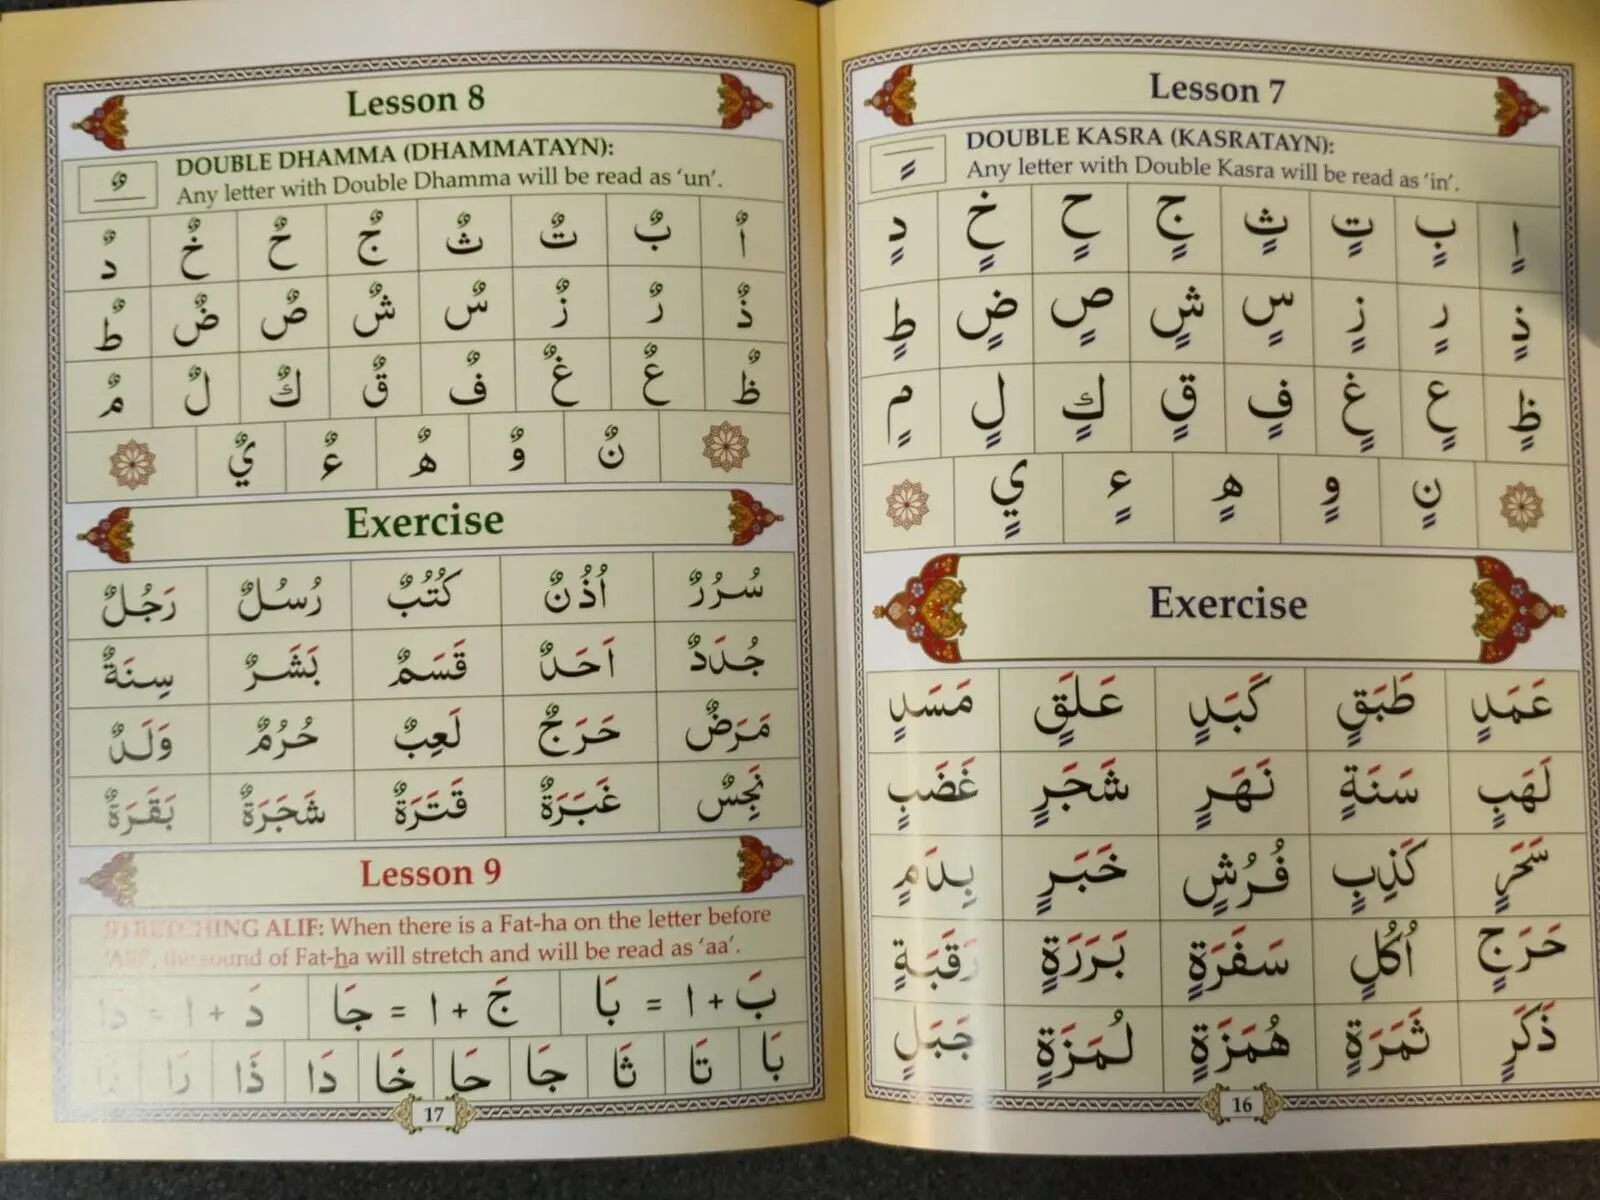 Lesson 7
DOUBLE KASRA (KASRATAYN):
Any letter with Double Kasra will be read as ‘in’.
اٍ بٍ تٍ ثٍ جٍ حٍ خٍ دٍ
ذٍ رٍ زٍ سٍ شٍ صٍ ضٍ طٍ
ظٍ عٍ غٍ فٍ قٍ كٍ لٍ مٍ
نٍ وٍ هٍ ءٍ يٍ
Exercise
عَمَدٍ طَبَقٍ كَبَدٍ عَلَقٍ مَسَدٍ
لَهَبٍ سَنَةٍ نَهَرٍ شَجَرٍ غَضَبٍ
كَذِبٍ فُرُشٍ خَبَرٍ بِدَمٍ
حَرَجٍ اُكُلٍ سَفَرَةٍ بَرَرَةٍ رَقَبَةٍ
ذَكَرٍ ثَمَرَةٍ هُمَزَةٍ لُمَزَةٍ جَبَلٍ
16
Lesson 8
DOUBLE DHAMMA (DHAMMATAYN):
Any letter with Double Dhamma will be read as ‘un’.
اٌ بٌ تٌ ثٌ جٌ حٌ خٌ دٌ
ذٌ رٌ زٌ سٌ شٌ صٌ ضٌ طٌ
ظٌ عٌ غٌ فٌ قٌ كٌ لٌ مٌ
نٌ وٌ هٌ ءٌ يٌ
Exercise
سُرُرٌ اُذُنٌ كُتُبٌ رُسُلٌ رَجُلٌ
جُدَدٌ اَحَدٌ قَسَمٌ بَشَرٌ سِنَةٌ
مَرَضٌ حَرَجٌ لَعِبٌ حُرُمٌ وَلَدٌ
نَجِسٌ غَبَرَةٌ قَتَرَةٌ شَجَرَةٌ بَقَرَةٌ
Lesson 9
STRETCHING ALIF: When there is a Fat-ha on the letter before
‘Alif’, the sound of Fat-ha will stretch and will be read as ‘aa’.
بَ + ا = بَا جَ + ا = جَا دَ + ا = دَا
بَا تَا ثَا جَا حَا خَا دَا ذَا رَا زَا
17